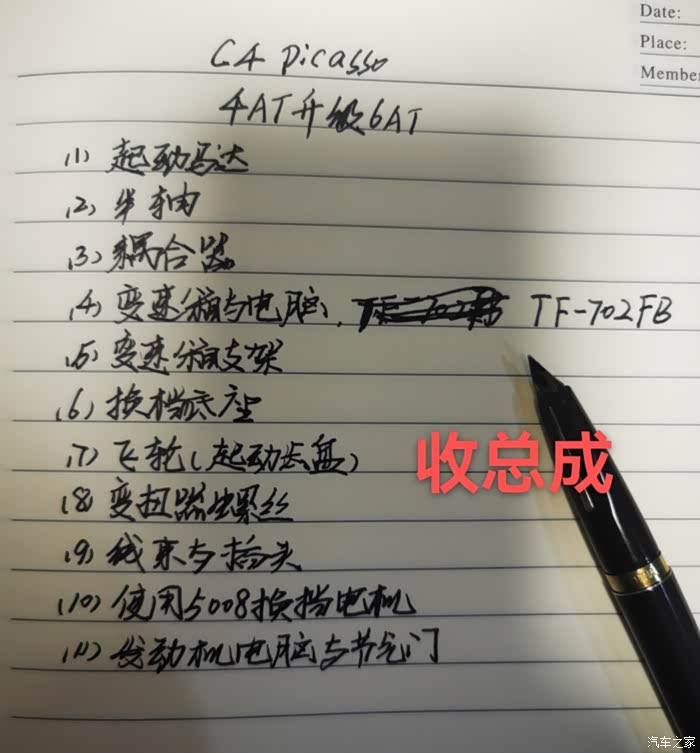 Date:
Place:
Member
C4 picasso
4AT升级6AT
(1) 起动马达
(2) 半轴
(3) 耦合器
(4) 变速箱与电脑, TF-702FB
(5) 变速箱支架
(6) 换档底座
(7) 飞轮(起动齿盘)
(8) 变扭器螺丝
(9) 线束与插头
(10) 使用5008换挡电机
(11) 发动机电脑与节气门
收总成
汽车之家